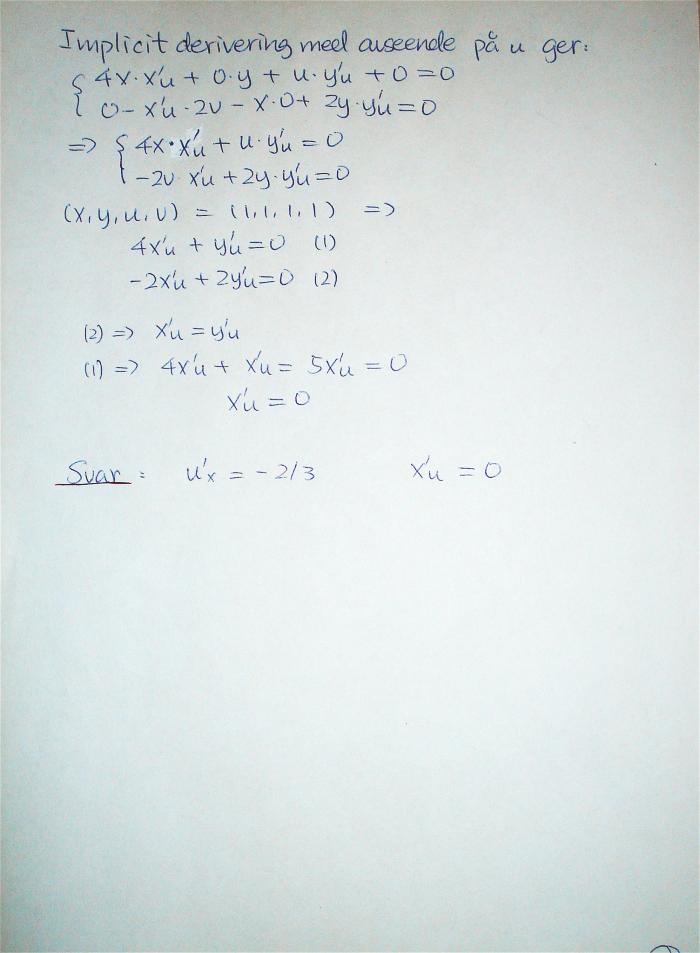 Implicit derivering med avseende på u ger:
{ 4x·x'u + 0·y + u·y'u + 0 = 0
0 - x'u·2v - x·0 + 2y·y'u = 0
=> { 4x·x'u + u·y'u = 0
-2v·x'u + 2y·y'u = 0
(x,y,u,v) = (1,1,1,1) =>
4x'u + y'u = 0 (1)
-2x'u + 2y'u = 0 (2)
(2) => x'u = y'u
(1) => 4x'u + x'u = 5x'u = 0
x'u = 0
Svar: u'x = -2/3 x'u = 0